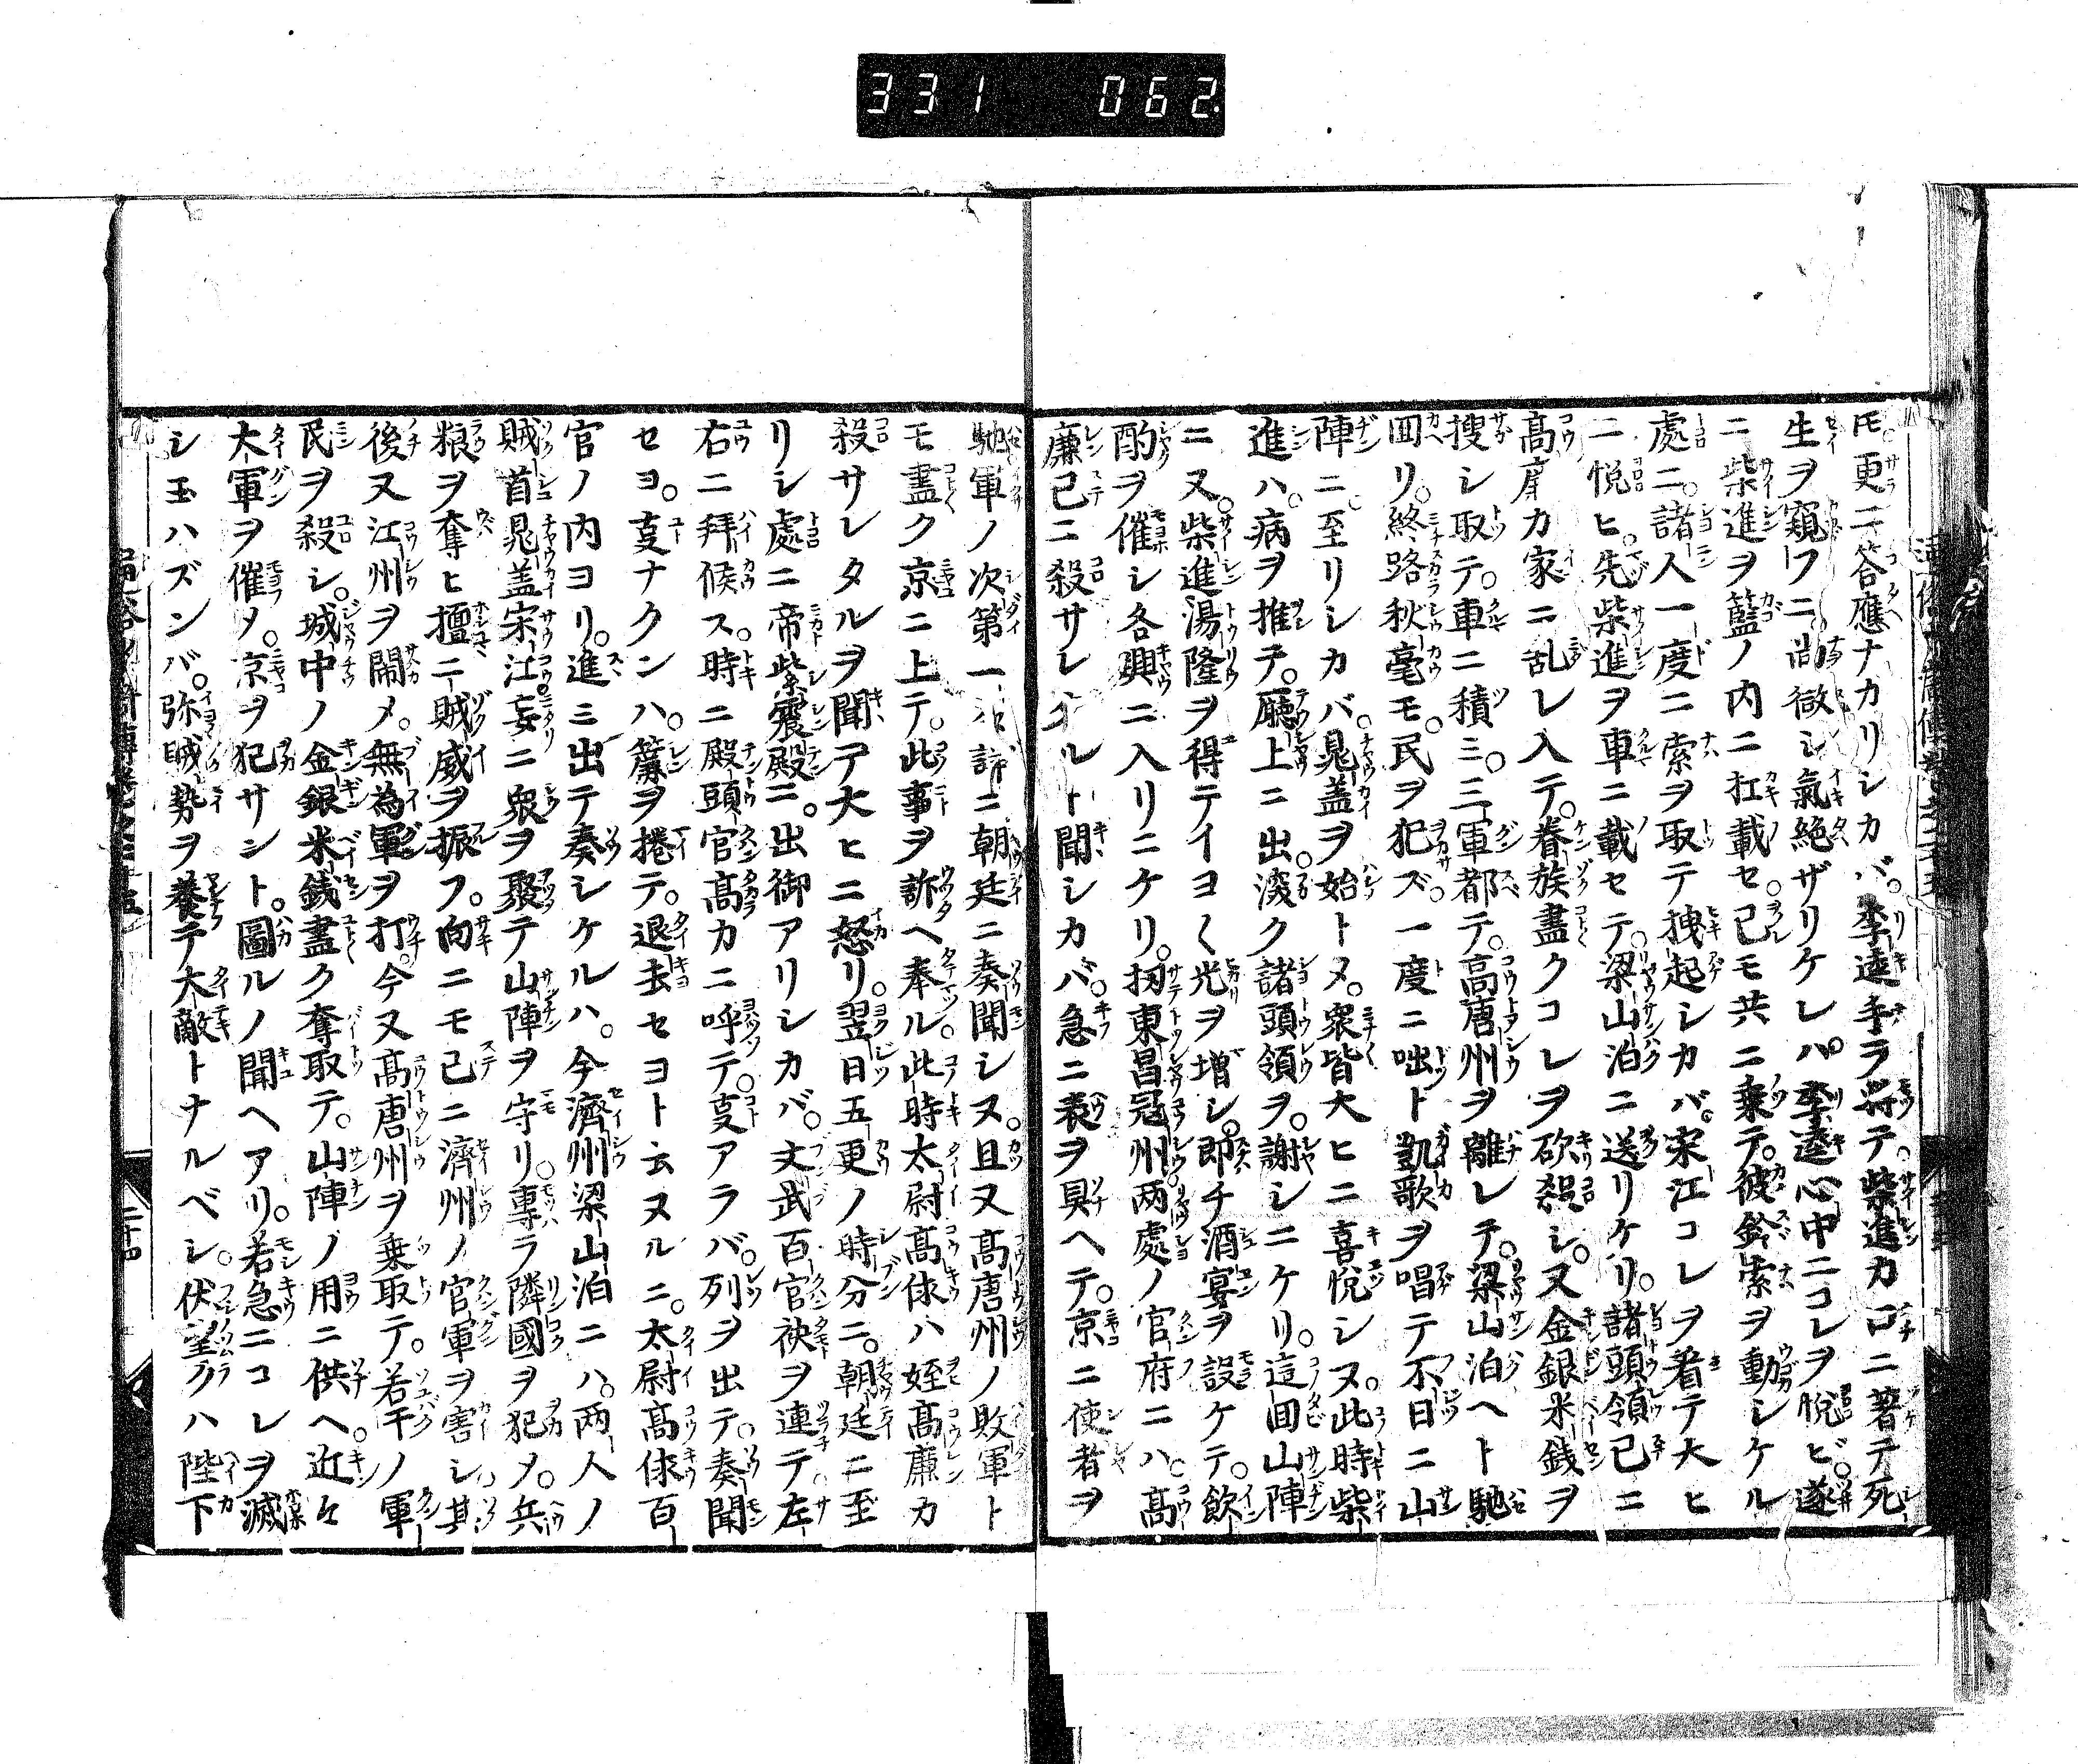 331 062
㪽更ニ答應ナカリシカバ。李逵手ヲ將テ。柴進カ口ニ著テ死
生ヲ窺フニ尚微シ氣絶ザリケレバ。李逵心中ニコレヲ悦ビ。遂
ニ柴進ヲ籃ノ内ニ扛載セ。己モ共ニ乗テ。彼鈴索ヲ動シケル
處ニ。諸人一度ニ索ヲ取テ拽起シカバ。宋江コレヲ看テ大ヒ
ニ悦ヒ。先柴進ヲ車ニ載セテ。梁山泊ニ送リケリ。諸頭領已ニ
高廉カ家ニ乱レ入テ。眷族盡クコレヲ砍殺シ。又金銀米錢ヲ
搜シ取テ。車ニ積ミ。三軍都テ。高唐州ヲ離レテ。梁山泊ヘト馳
回リ。終路秋毫モ。民ヲ犯ズ。一度ニ咄ト凱歌ヲ唱テ不日ニ山
陣ニ。至リシカバ。晁盖ヲ始トメ。衆皆大ヒニ喜悦シヌ。此時柴
進ハ。病ヲ推テ。廳上ニ出。深ク諸頭領ヲ。謝シニケリ。這回山陣
ニ又。柴進湯隆ヲ得テイヨ〱光ヲ增シ。即チ酒宴ヲ設ケテ。飲
酌ヲ催シ各興ニ入リニケリ。扨東昌冠州两處ノ官府ニハ。高
廉已ニ殺サレタルト聞シカバ。急ニ表ヲ具ヘテ。京ニ使者ヲ
馳軍ノ次第一〻詳ニ朝廷ニ奏聞シヌ。且又高唐州ノ敗軍ト
モ盡ク京ニ上テ。此事ヲ訴ヘ奉ル。此時太尉高俅ハ姪高廉カ
殺サレタルヲ聞テ大ヒニ怒リ。翌日五更ノ時分ニ。朝廷ニ至
リシ處ニ帝紫宸殿ニ。出御アリシカバ。文武百官袂ヲ連テ。左
右ニ拜候ス。時ニ殿頭官高カニ呼テ。㕝アラバ。列ヲ出テ。奏聞
セヨ。㕝ナクンハ。簾ヲ捲テ。退去セヨト云ヌルニ。太尉高俅百
官ノ内ヨリ。進ミ出テ奏シケルハ。今濟州梁山泊ニハ。两人ノ
賊首晁盖宋江。妄ニ衆ヲ聚テ山陣ヲ守リ。專ラ隣國ヲ犯メ。兵
粮ヲ奪ヒ擅ニ賊威ヲ振フ。向ニモ已ニ濟州ノ官軍ヲ害シ其
後又江州ヲ閙メ。無為軍ヲ打。今又高唐州ヲ乗取テ。若干ノ軍
民ヲ殺シ。城中ノ金銀米錢盡ク奪取テ。山陣ノ用ニ供ヘ。近々
大軍ヲ催メ。京ヲ犯サント。圖ルノ聞ヘアリ。若急ニコレヲ滅
シ玉ハズンバ。弥賊勢ヲ養テ大敵トナルベシ。伏望クハ陛下
二十四